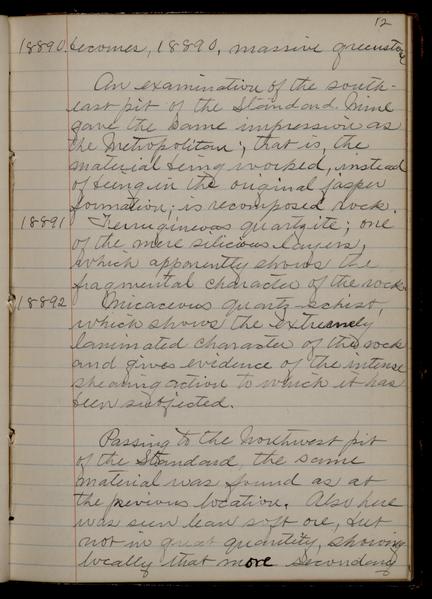 12
18890. becomes, 18890, massive greenstone
An examination of the south-
east pit of the Standard Mine
gave the same impression as
the Metropolitan; that is, the
material being worked, instead
of being in the original jasper
formation, is recomposed rock.
18891 Ferruginous quartzite; one
of the more silicious layers,
which apparently shows the
fragmental character of the rock.
18892 Micaceous quartz-schist,
which shows the extremely
laminated character of the rock
and gives evidence of the intense
shearing action to which it has
been subjected.
Passing to the Northwest pit
of the Standard, the same
material was found as at
the previous location. Also here
was seen lean soft ore, but
not in great quantity, showing
locally that more secondary